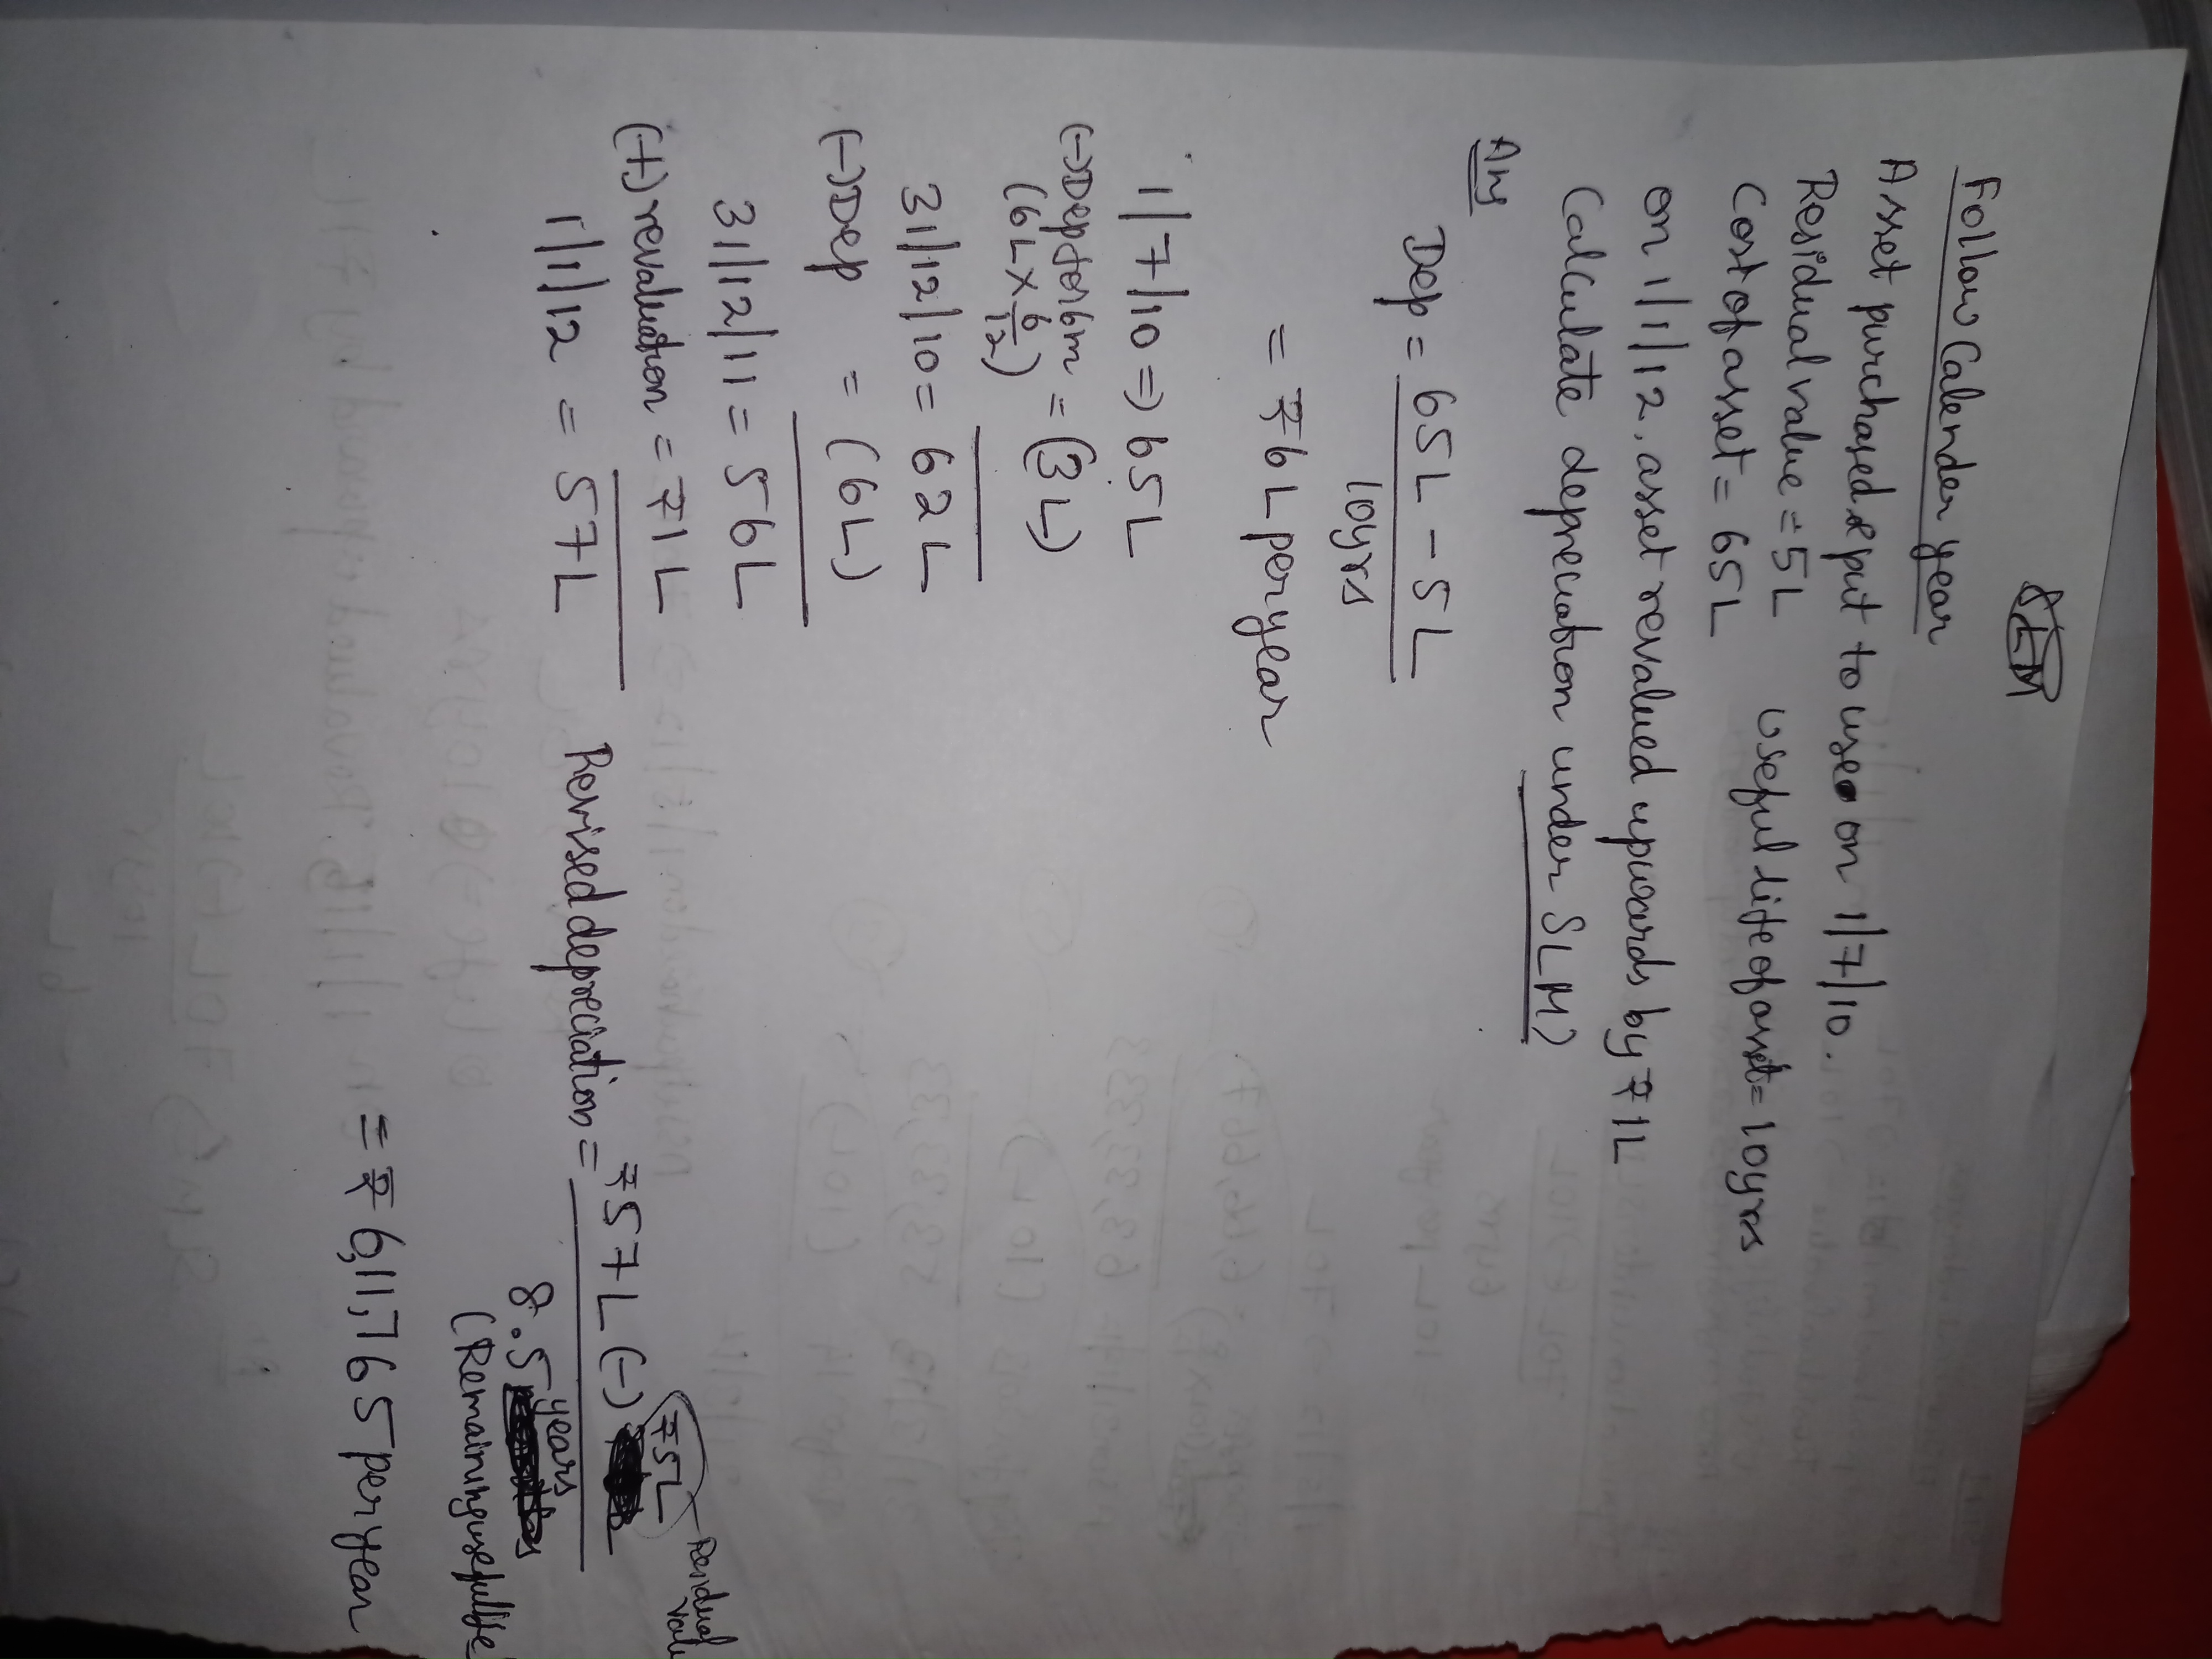 SLM
Follow Calender year
Asset purchased & put to use on 1/7/10.
Residual value = 5L useful life of asset = 10yrs
Cost of asset = 65L
on 1/1/12, asset revalued upwards by ₹1L
Calculate depreciation under SLM?
Ans
Dep = 65L - 5L
10yrs
= ₹6L per year
1/7/10 => 65L
(-) Dep for 6m = (3L)
(6L × 6/12)
31/12/10 = 62L
(-) Dep = (6L)
31/12/11 = 56L
(+) revaluation = ₹1L
1/1/12 = 57L
Revised depreciation = ₹57L (-) ₹5L Residual
8.5 years
(Remaining useful life
= ₹6,11,765 per year